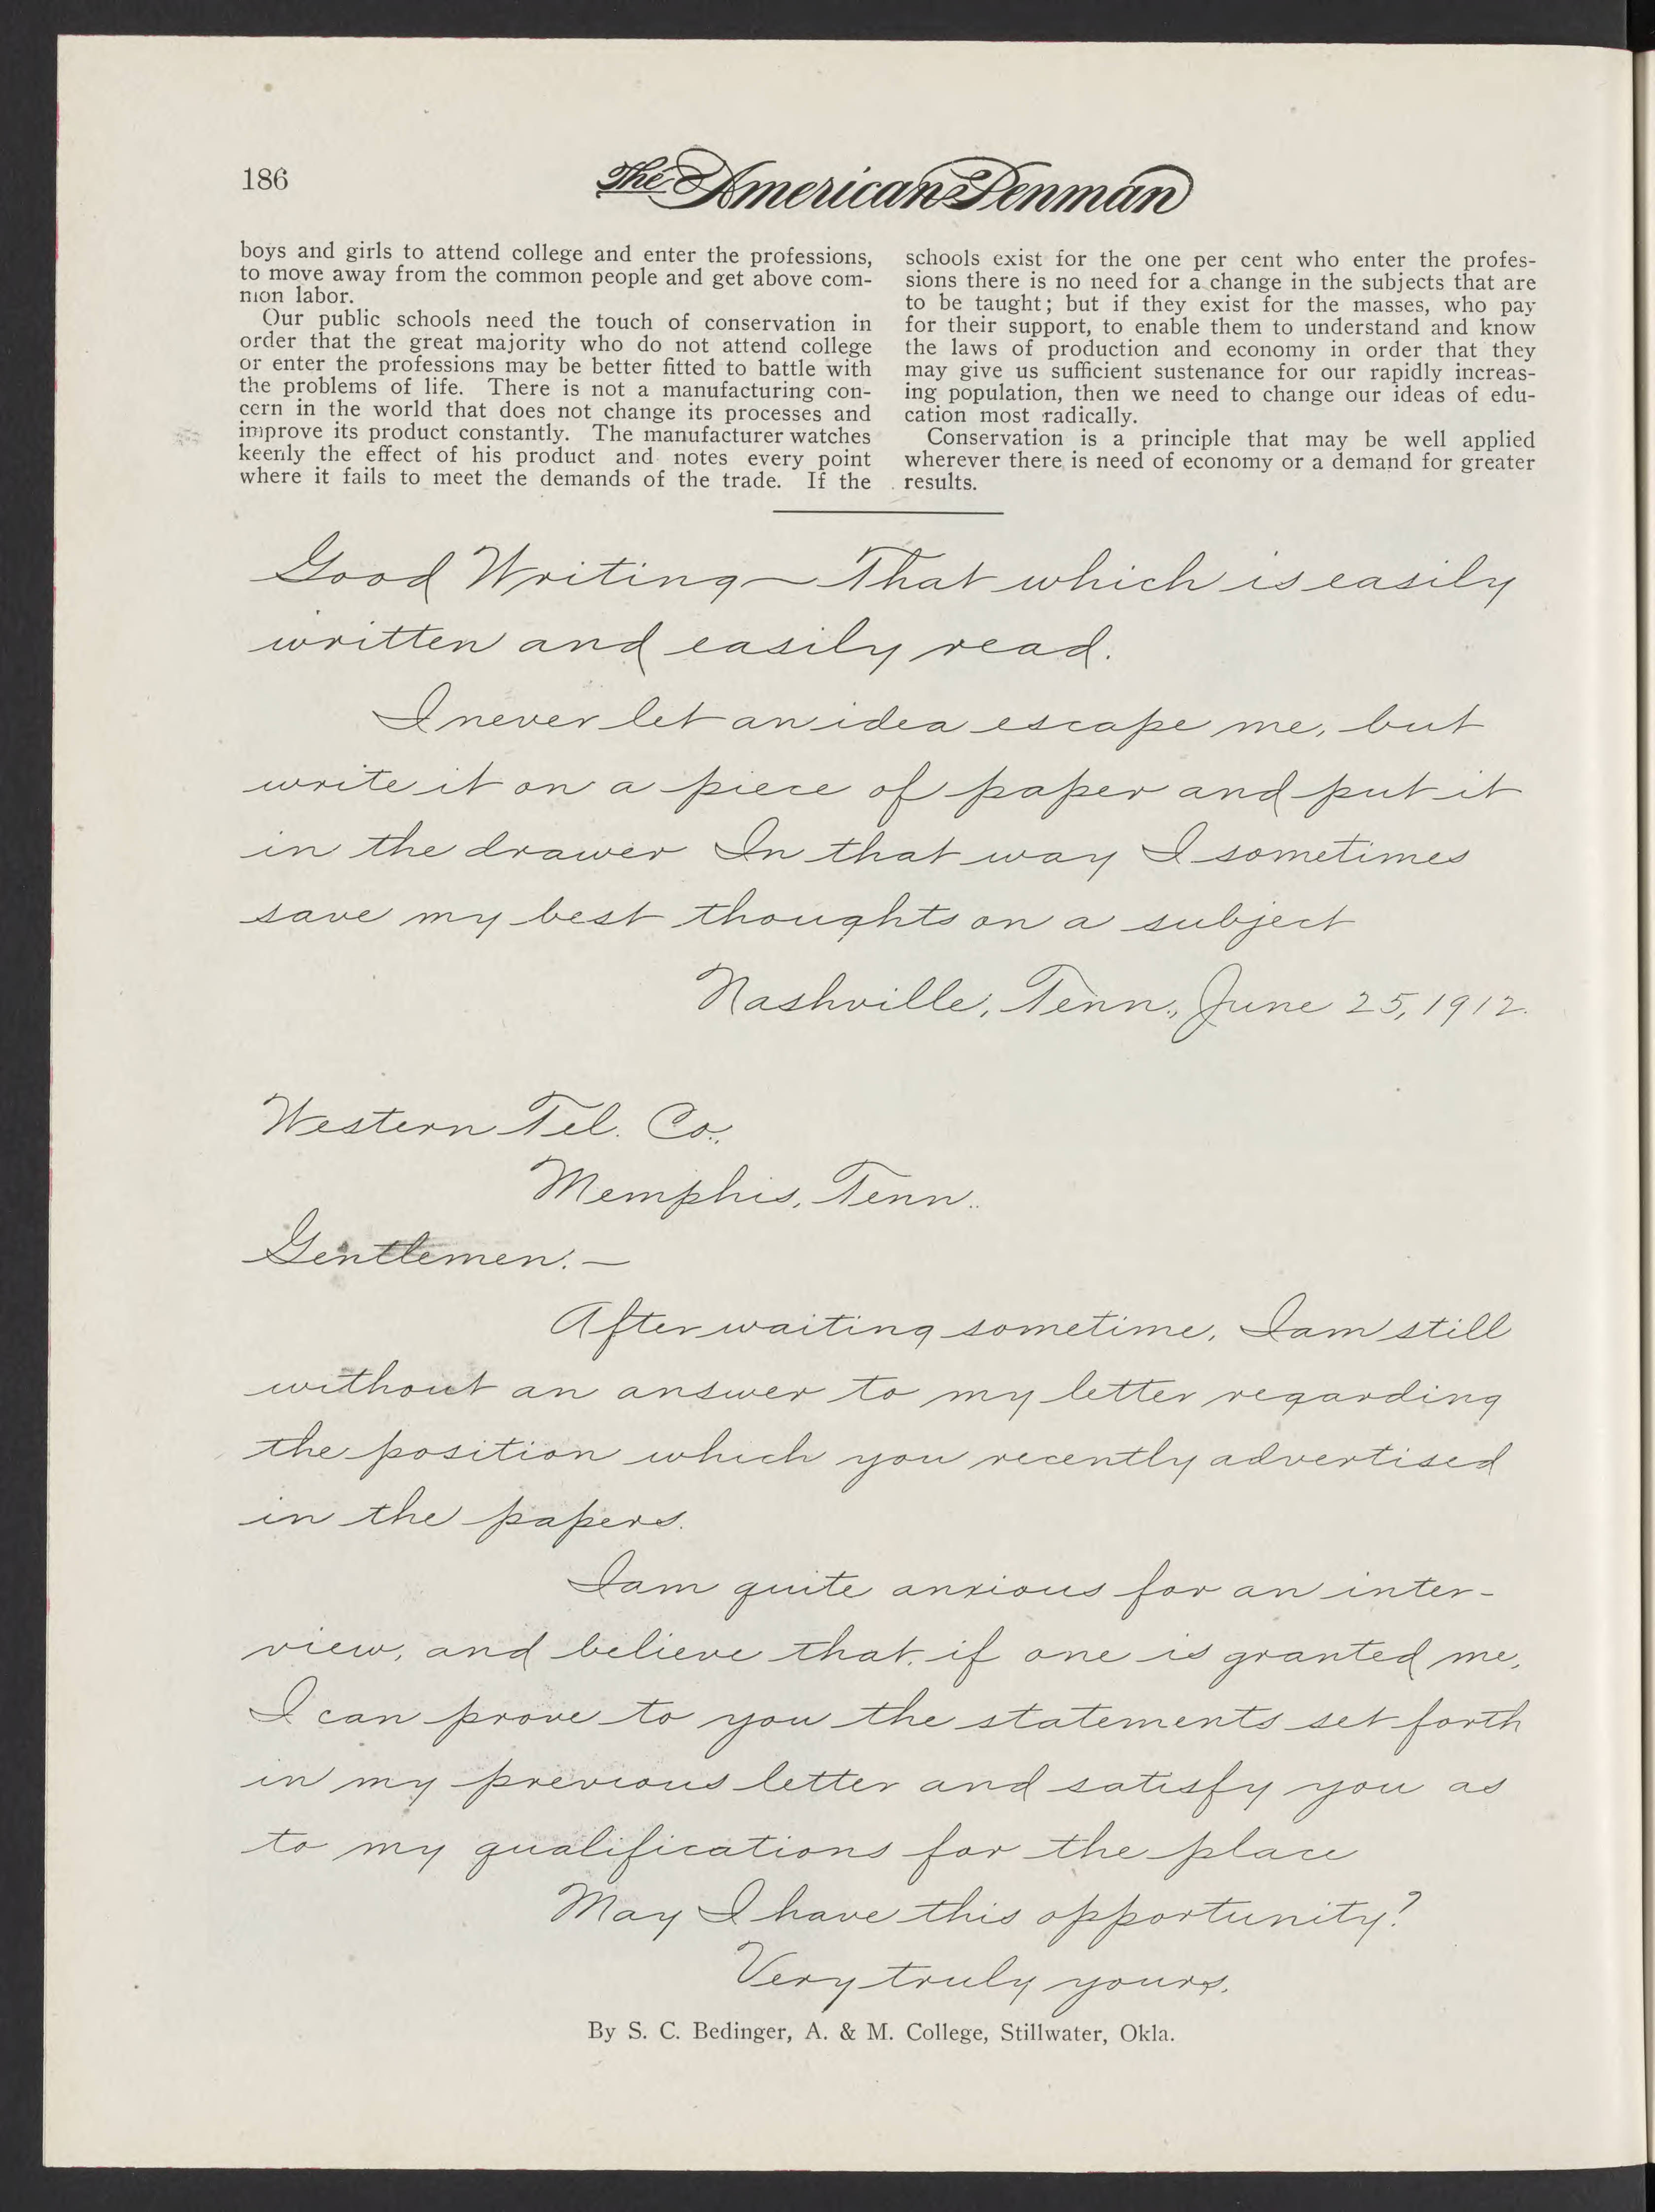 186
The American Penman
boys and girls to attend college and enter the professions,
to move away from the common people and get above com-
mon labor.
Our public schools need the touch of conservation in
order that the great majority who do not attend college
or enter the professions may be better fitted to battle with
the problems of life. There is not a manufacturing con-
cern in the world that does not change its processes and
improve its product constantly. The manufacturer watches
keenly the effect of his product and notes every point
where it fails to meet the demands of the trade. If the
schools exist for the one per cent who enter the profes-
sions there is no need for a change in the subjects that are
to be taught; but if they exist for the masses, who pay
for their support, to enable them to understand and know
the laws of production and economy in order that they
may give us sufficient sustenance for our rapidly increas-
ing population, then we need to change our ideas of edu-
cation most radically.
Conservation is a principle that may be well applied
wherever there is need of economy or a demand for greater
results.
Good Writing — That which is easily
written and easily read.
I never let an idea escape me, but
write it on a piece of paper and put it
in the drawer In that way I sometimes
save my best thoughts on a subject
Nashville, Tenn., June 25, 1912.
Western Tel. Co.,
Memphis, Tenn..
Gentlemen: —
After waiting sometime, I am still
without an answer to my letter regarding
the position which you recently advertised
in the papers.
I am quite anxious for an inter-
view, and believe that, if one is granted me,
I can prove to you the statements set forth
in my previous letter and satisfy you as
to my qualifications for the place
May I have this opportunity?
Very truly yours,
By S. C. Bedinger, A. & M. College, Stillwater, Okla.